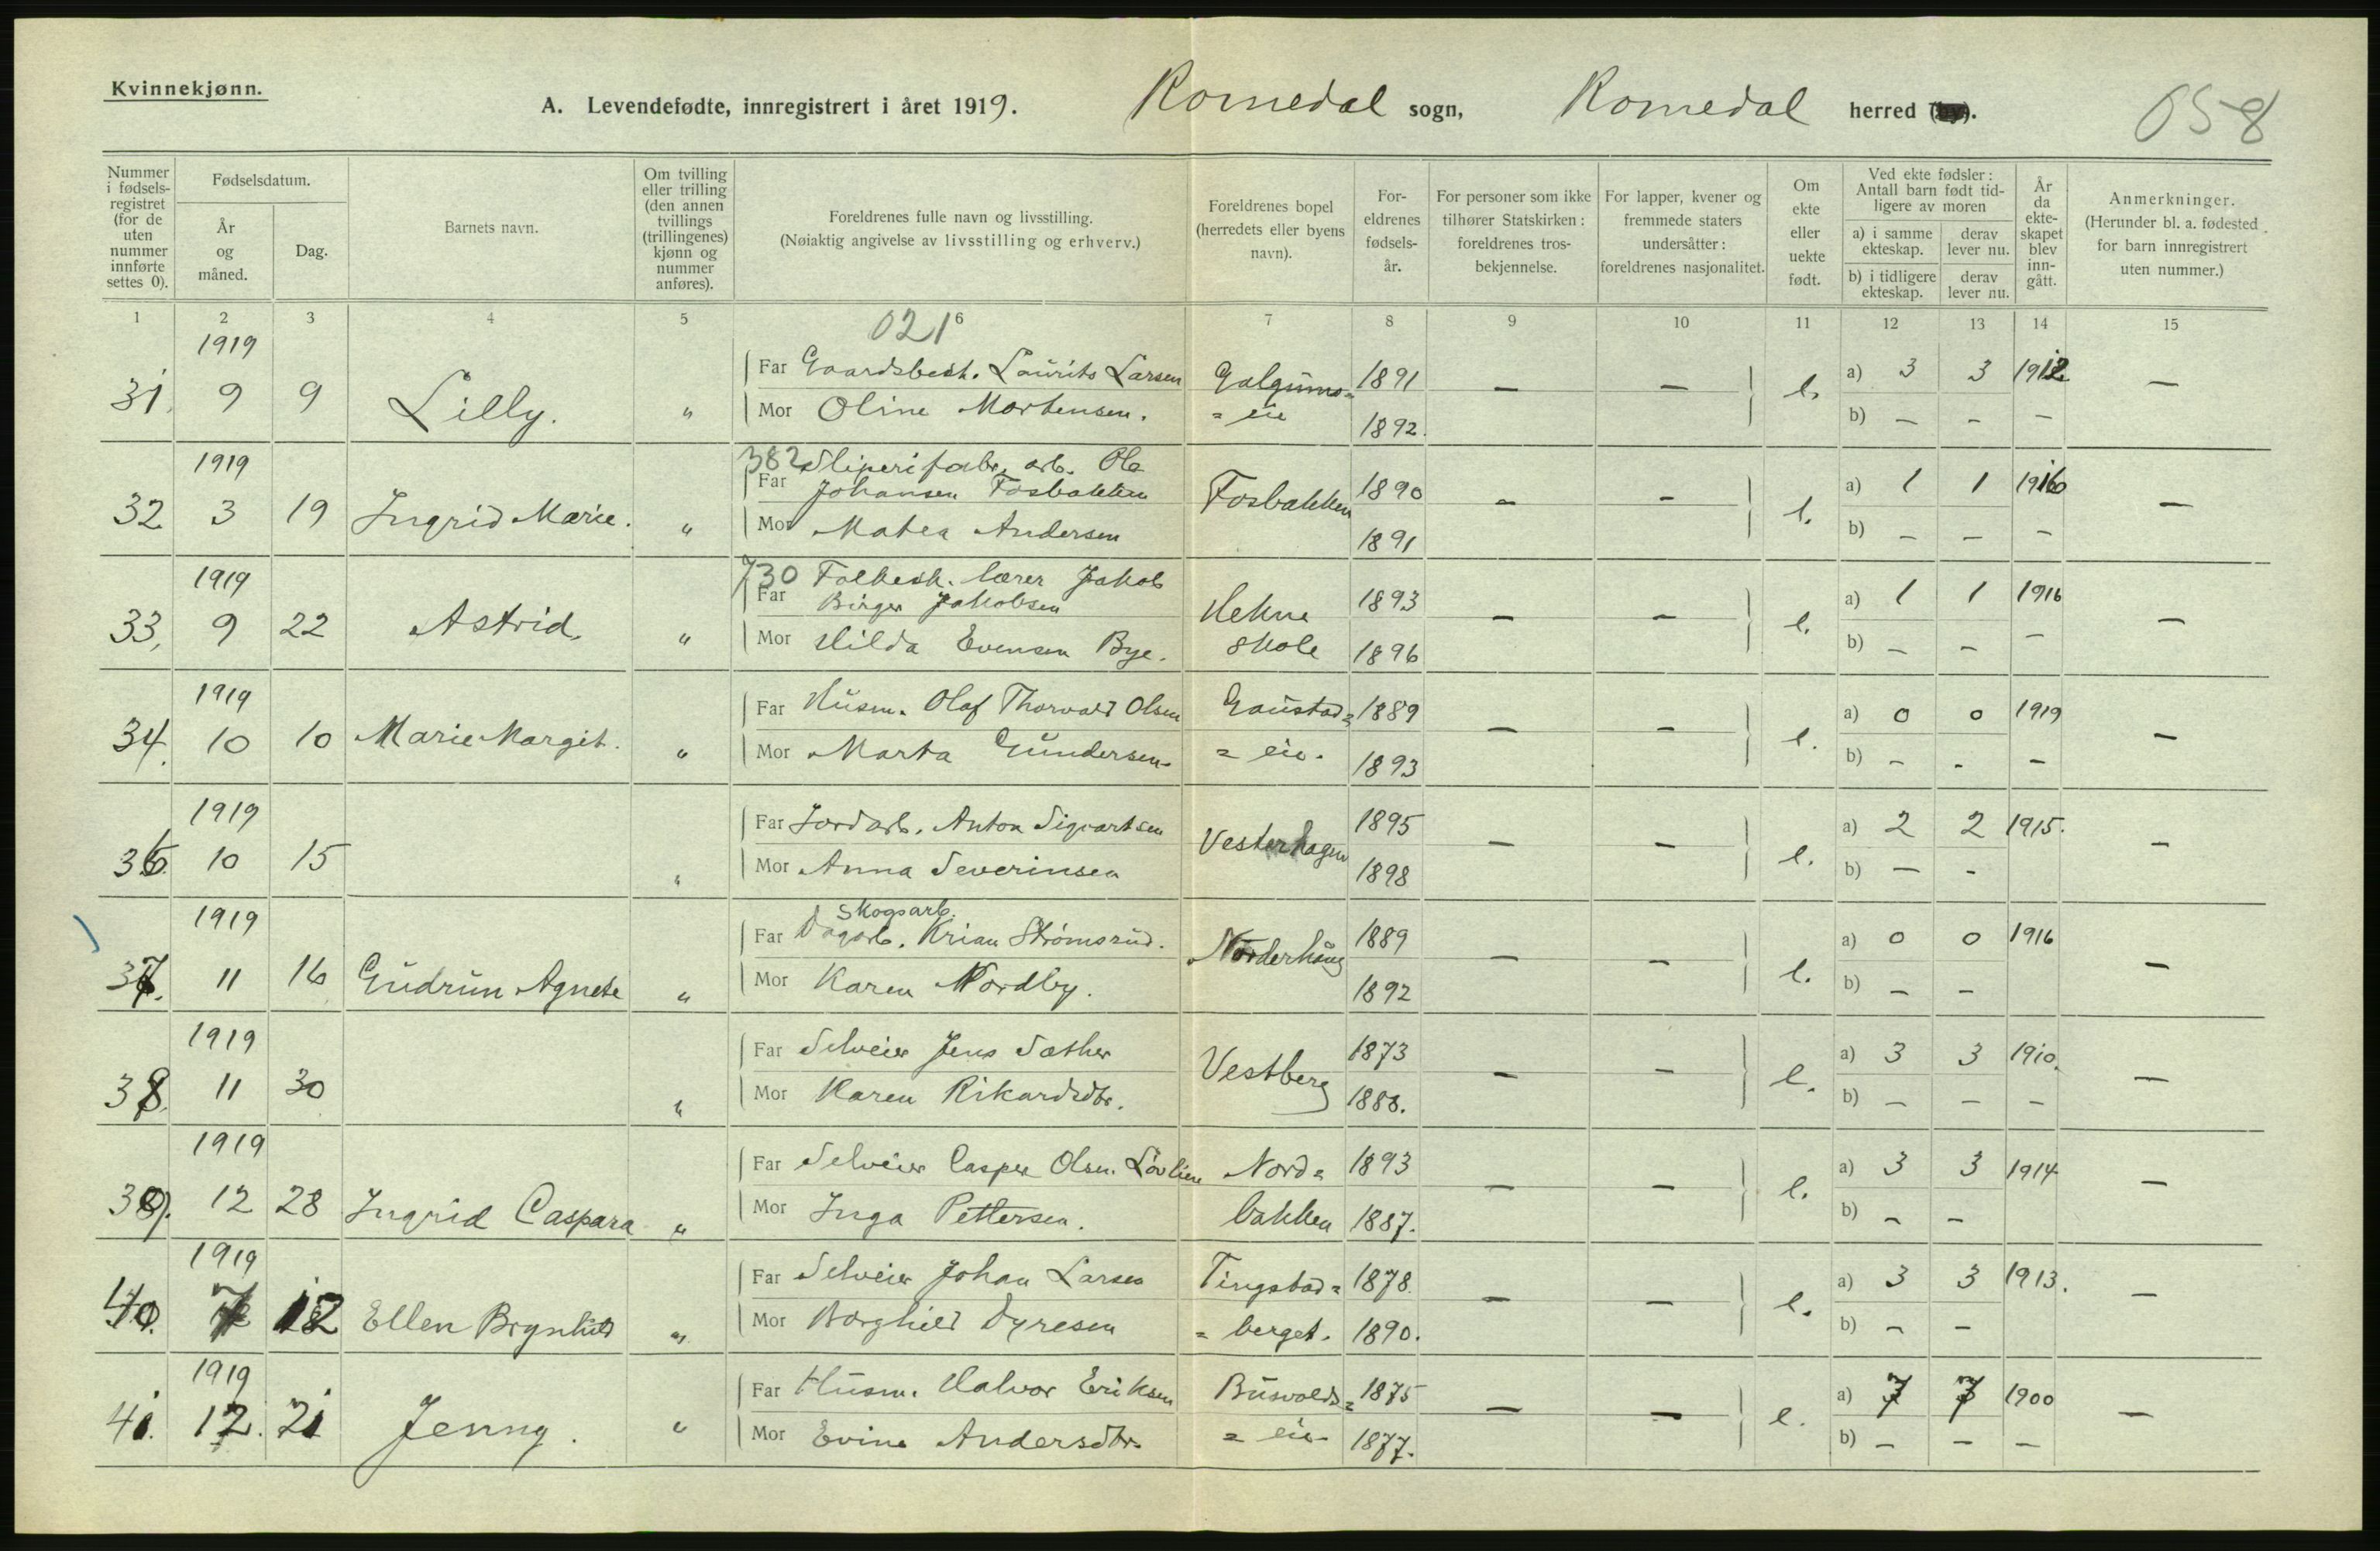 Kvinnekjønn.
A. Levendefødte, innregistrert i året 1919. Romedal sogn, Romedal herred (by).
058
Nummer i fødsels-registret (for de uten nummer innførte settes 0).
Fødselsdatum.
År og måned.
Dag.
Barnets navn.
Om tvilling eller trilling (den annen tvillings (trillingenes) kjønn og nummer anføres).
Foreldrenes fulle navn og livsstilling.
(Nøiaktig angivelse av livsstilling og erhverv.)
Foreldrenes bopel (herredets eller byens navn).
For-eldrenes fødsels-år.
For personer som ikke tilhører Statskirken: foreldrenes tros-bekjennelse.
For lapper, kvener og fremmede staters undersåtter: foreldrenes nasjonalitet.
Om ekte eller uekte født.
Ved ekte fødsler: Antall barn født tid-ligere av moren
a) i samme ekteskap.
derav lever nu.
b) i tidligere ekteskap.
derav lever nu.
År da ekte-skapet blev inn-gått.
Anmerkninger.
(Herunder bl. a. fødested for barn innregistrert uten nummer.)
1 2 3 4 5 6 7 8 9 10 11 12 13 14 15
021
1919
31. 9 9 Lilly. „ Far Gaardsbest. Laurits Larsen Galgums= 1891 – – e. a) 3 3 1912 –
Mor Oline Mortensen. = eie 1892. b) – – –
1919
382 Sliperifabr. arb. Ole
32 3 19 Ingrid Marie. „ Far Johansen Fosbakken Fosbakken 1890 – – e. a) 1 1 1916 –
Mor Matea Andersen 1891 b) – – –
1919
730 Folkesk. lærer Jakob
33, 9 22 Astrid. „ Far Birger Jakobsen Hekne 1893 – – e. a) 1 1 1916 –
Mor Hilda Evensen Bye. skole 1896 b) – – –
1919
34. 10 10 Marie Margit. „ Far Husm. Olaf Thorvald Olsen Gaustad= 1889 – – e. a) 0 0 1919 –
Mor Marta Gundersen = eie. 1893 b) – – –
1919
36. 10 15 „ Far Jordarb. Anton Sigvartsen Vesterhagen 1895 – – e. a) 2 2 1915. –
Mor Anna Severinsen 1898 b) – –
1919
Skogsarb.
37. 11 16 Gudrun Agnete „ Far Dagarb. Krian Strømsrud. Norderhaug 1889 – – e. a) 0 0 1916 –
Mor Karen Nordby. 1892 b) – –
1919
38. 11 30 „ Far Selveier Jens Sæther Vestberg 1873 – – e. a) 3 3 1910. –
Mor Karen Rikardsdtr. 1888. b) – – –
1919
39. 12 28 Ingrid Caspara „ Far Selveier Casper Olsen Løvlien Nord= 1893 – – e. a) 3 3 1914 –
Mor Inga Pettersen. bakken 1887. b) – –
1919
40. 7 12 Ellen Brynhild „ Far Selveier Johan Larsen Tingstad= 1878. – – e. a) 3 3 1913. –
Mor Borghild Dyresen = berget. 1890. b) – –
1919
41. 12. 21 Jenny. „ Far Husm. Halvor Eriksen Busvolds= 1875 – – e. a) 7 7 1900 –
Mor Evine Andersdtr. = eie 1877. b) – – –